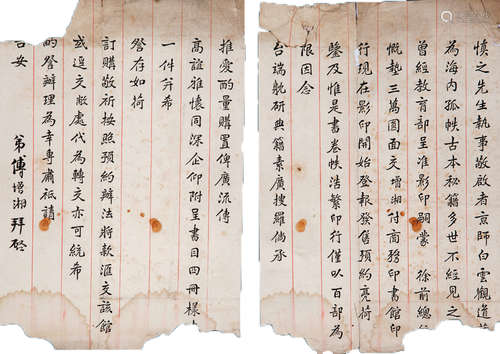 慎之先生執事敬啟者京師白雲觀道
為海內孤帙古本秘籍多世不經見之
曾經教育部呈准影印嗣蒙 徐前總
慨墊三萬圓面交增湘付商務印書館印
行現在影印開始登報發售預約亮荷
鑒及惟是書卷帙浩繁印行僅以百部為
限因念
台端耽研典籍素廣搜羅倘承
推愛酌量購置俾廣流傳
高誼雅懷同深企仰附呈書目四冊樣
一件并希
詧存如荷
訂購敬祈按照預約辦法將款滙交該館
或逕交敝處代為轉交亦可統希
酌詧辦理為幸專肅祗請
台安
弟傅增湘拜啓